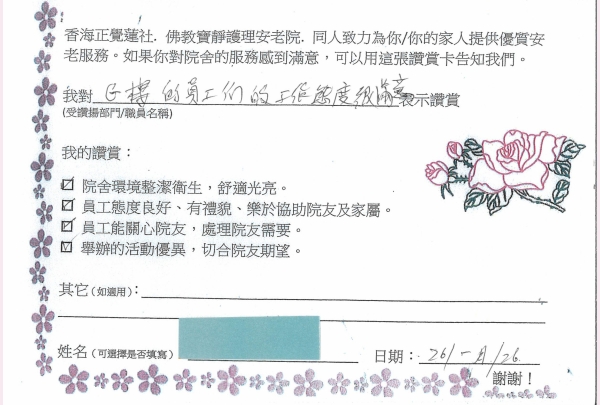 香海正覺蓮社．佛教寶靜護理安老院．同人致力為你/你的家人提供優質安
老服務。如果你對院舍的服務感到滿意，可以用這張讚賞卡告知我們。
我對 樓的員工們的工作態度很滿意 表示讚賞
(受讚揚部門/職員名稱)
我的讚賞：
☑ 院舍環境整潔衛生，舒適光亮。
☑ 員工態度良好、有禮貌、樂於協助院友及家屬。
☑ 員工能關心院友，處理院友需要。
☑ 舉辦的活動優異，切合院友期望。
其它(如適用)：
姓名(可選擇是否填寫)
日期：26/一月/26
謝謝！